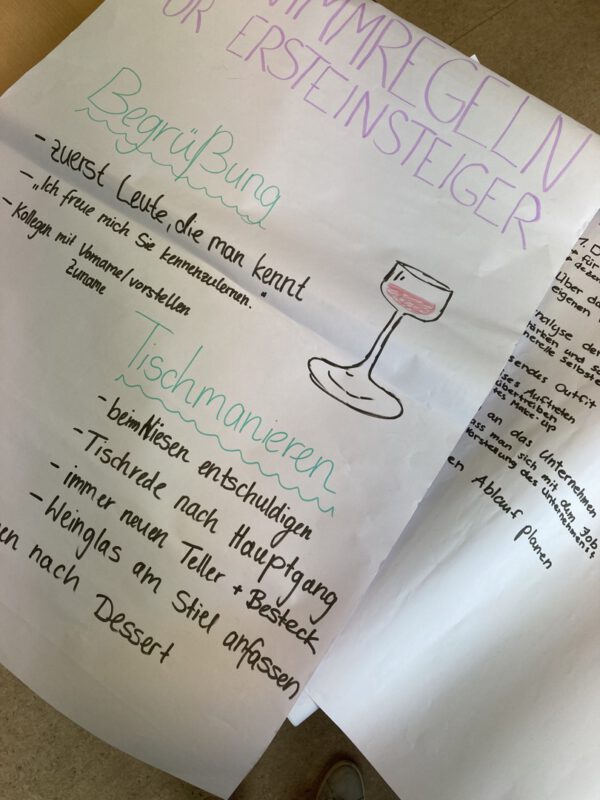 NIMMREGELN
ÜR ERSTEINSTEIGER
Begrüßung
- zuerst Leute, die man kennt
- „Ich freue mich Sie kennenzulernen."
- Kollegen mit Vorname/vorstellen
Zuname
Tischmanieren
- beim Niesen entschuldigen
- Tischrede nach Hauptgang
- immer neuen Teller + Besteck
- Weinglas am Stiel anfassen
en nach Dessert
1. D
+ für
+ dezen
über da
eigenen
nalyse der
tärken und s
nerelle Selbste
sendes Outfit
ses Auftreten
übertreiben
tes Make-up
an das Unternehmen
ass man sich mit dem Job
Vorstellung des Unternehmens
en Ablauf planen